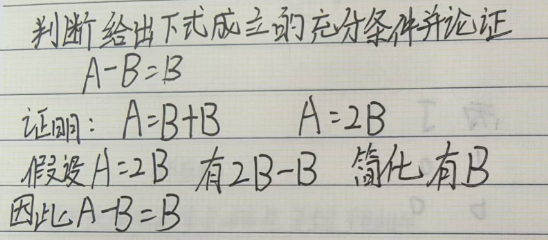 判断给出下式成立的充分条件并论证
A-B=B
证明: A=B+B A=2B
假设A=2B 有2B-B 简化有B
因此A-B=B